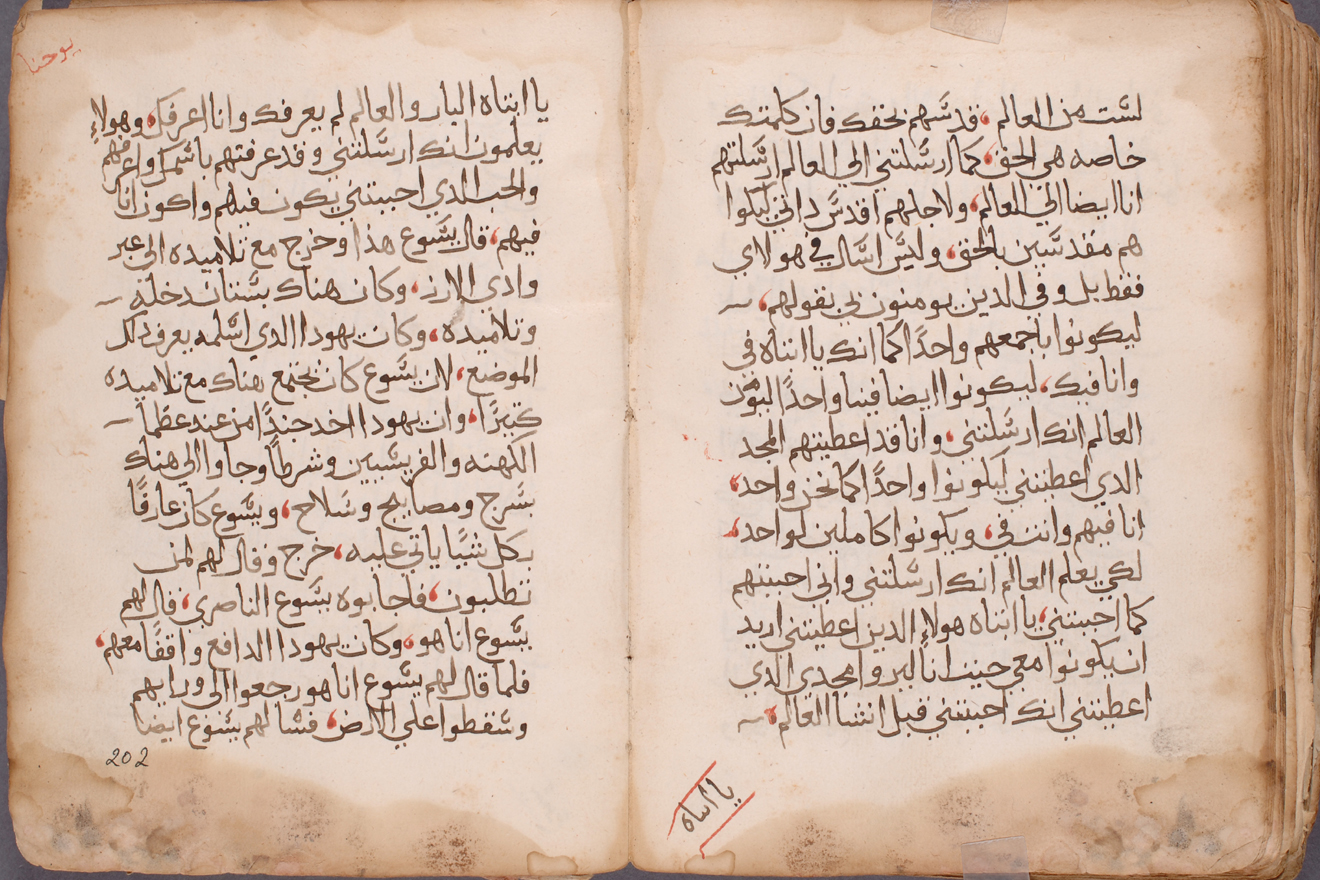 لست من العالم، قدسهم بحقك فان كلمتك
خاصه هي الحق، كما ارسلتني الي العالم ارسلتهم
انا ايضا الي العالم، ولاجلهم اقدس داتي ليكونوا
هم مقدسين بالحق، وليس اسال في هولاي
فقط بل وفي الدين يومنون بي بقولهم،
ليكونوا باجمعهم واحدًا كما انك يا ابتاه في
وانا فيك، ليكونوا ايضا فينا واحدًا ليومن
العالم انك ارسلتني، وانا قد اعطيتهم المجد
الدي اعطيتني ليكونوا واحدًا كما نحن واحد،
انا فيهم وانت في، ويكونوا كاملين لواحد،
لكي يعلم العالم انك ارسلتني واني احببتهم
كما احببتني، يا ابتاه هولاء الدين اعطيتني اريد
ان يكونوا معي حيت انا ليروا مجدي الدي
اعطيتني انك احببتني قبل انشا العالم،
يا ابتاه
يوحنا
يا ابتاه البار والعالم لم يعرفك وانا اعرفك، وهولاء
يعلمون انك ارسلتني وقد عرفتهم باسمك واعرفهم
والحب الدي احببتني يكون فيهم واكون انا
فيهم، قال يسوع هذا وخرج مع تلاميده الي عبر
وادي الارز، وكان هناك بستان دخله
وتلاميده، وكان يهودا الدي اسلمه يعرف ذلك
الموضع، لان يسوع كان يجتمع هناك مع تلاميده
كتيرًا، وان يهودا اخد جندًا من عند عظما
الكهنه والفريسيين وشرطًا وجاوا الي هناك
بسرج ومصابيح وسلاح، ويسوع كان عارفًا
بكل شيًا ياتي عليه، خرج وقال لهم لمن
تطلبون، فاجابوه يسوع الناصري، قال لهم
يسوع انا هو، وكان يهودا الدافع واقفًا معهم،
فلما قال لهم يسوع انا هو رجعوا الي ورايهم
وسقطوا علي الارض، فسالهم يسوع ايضا
202